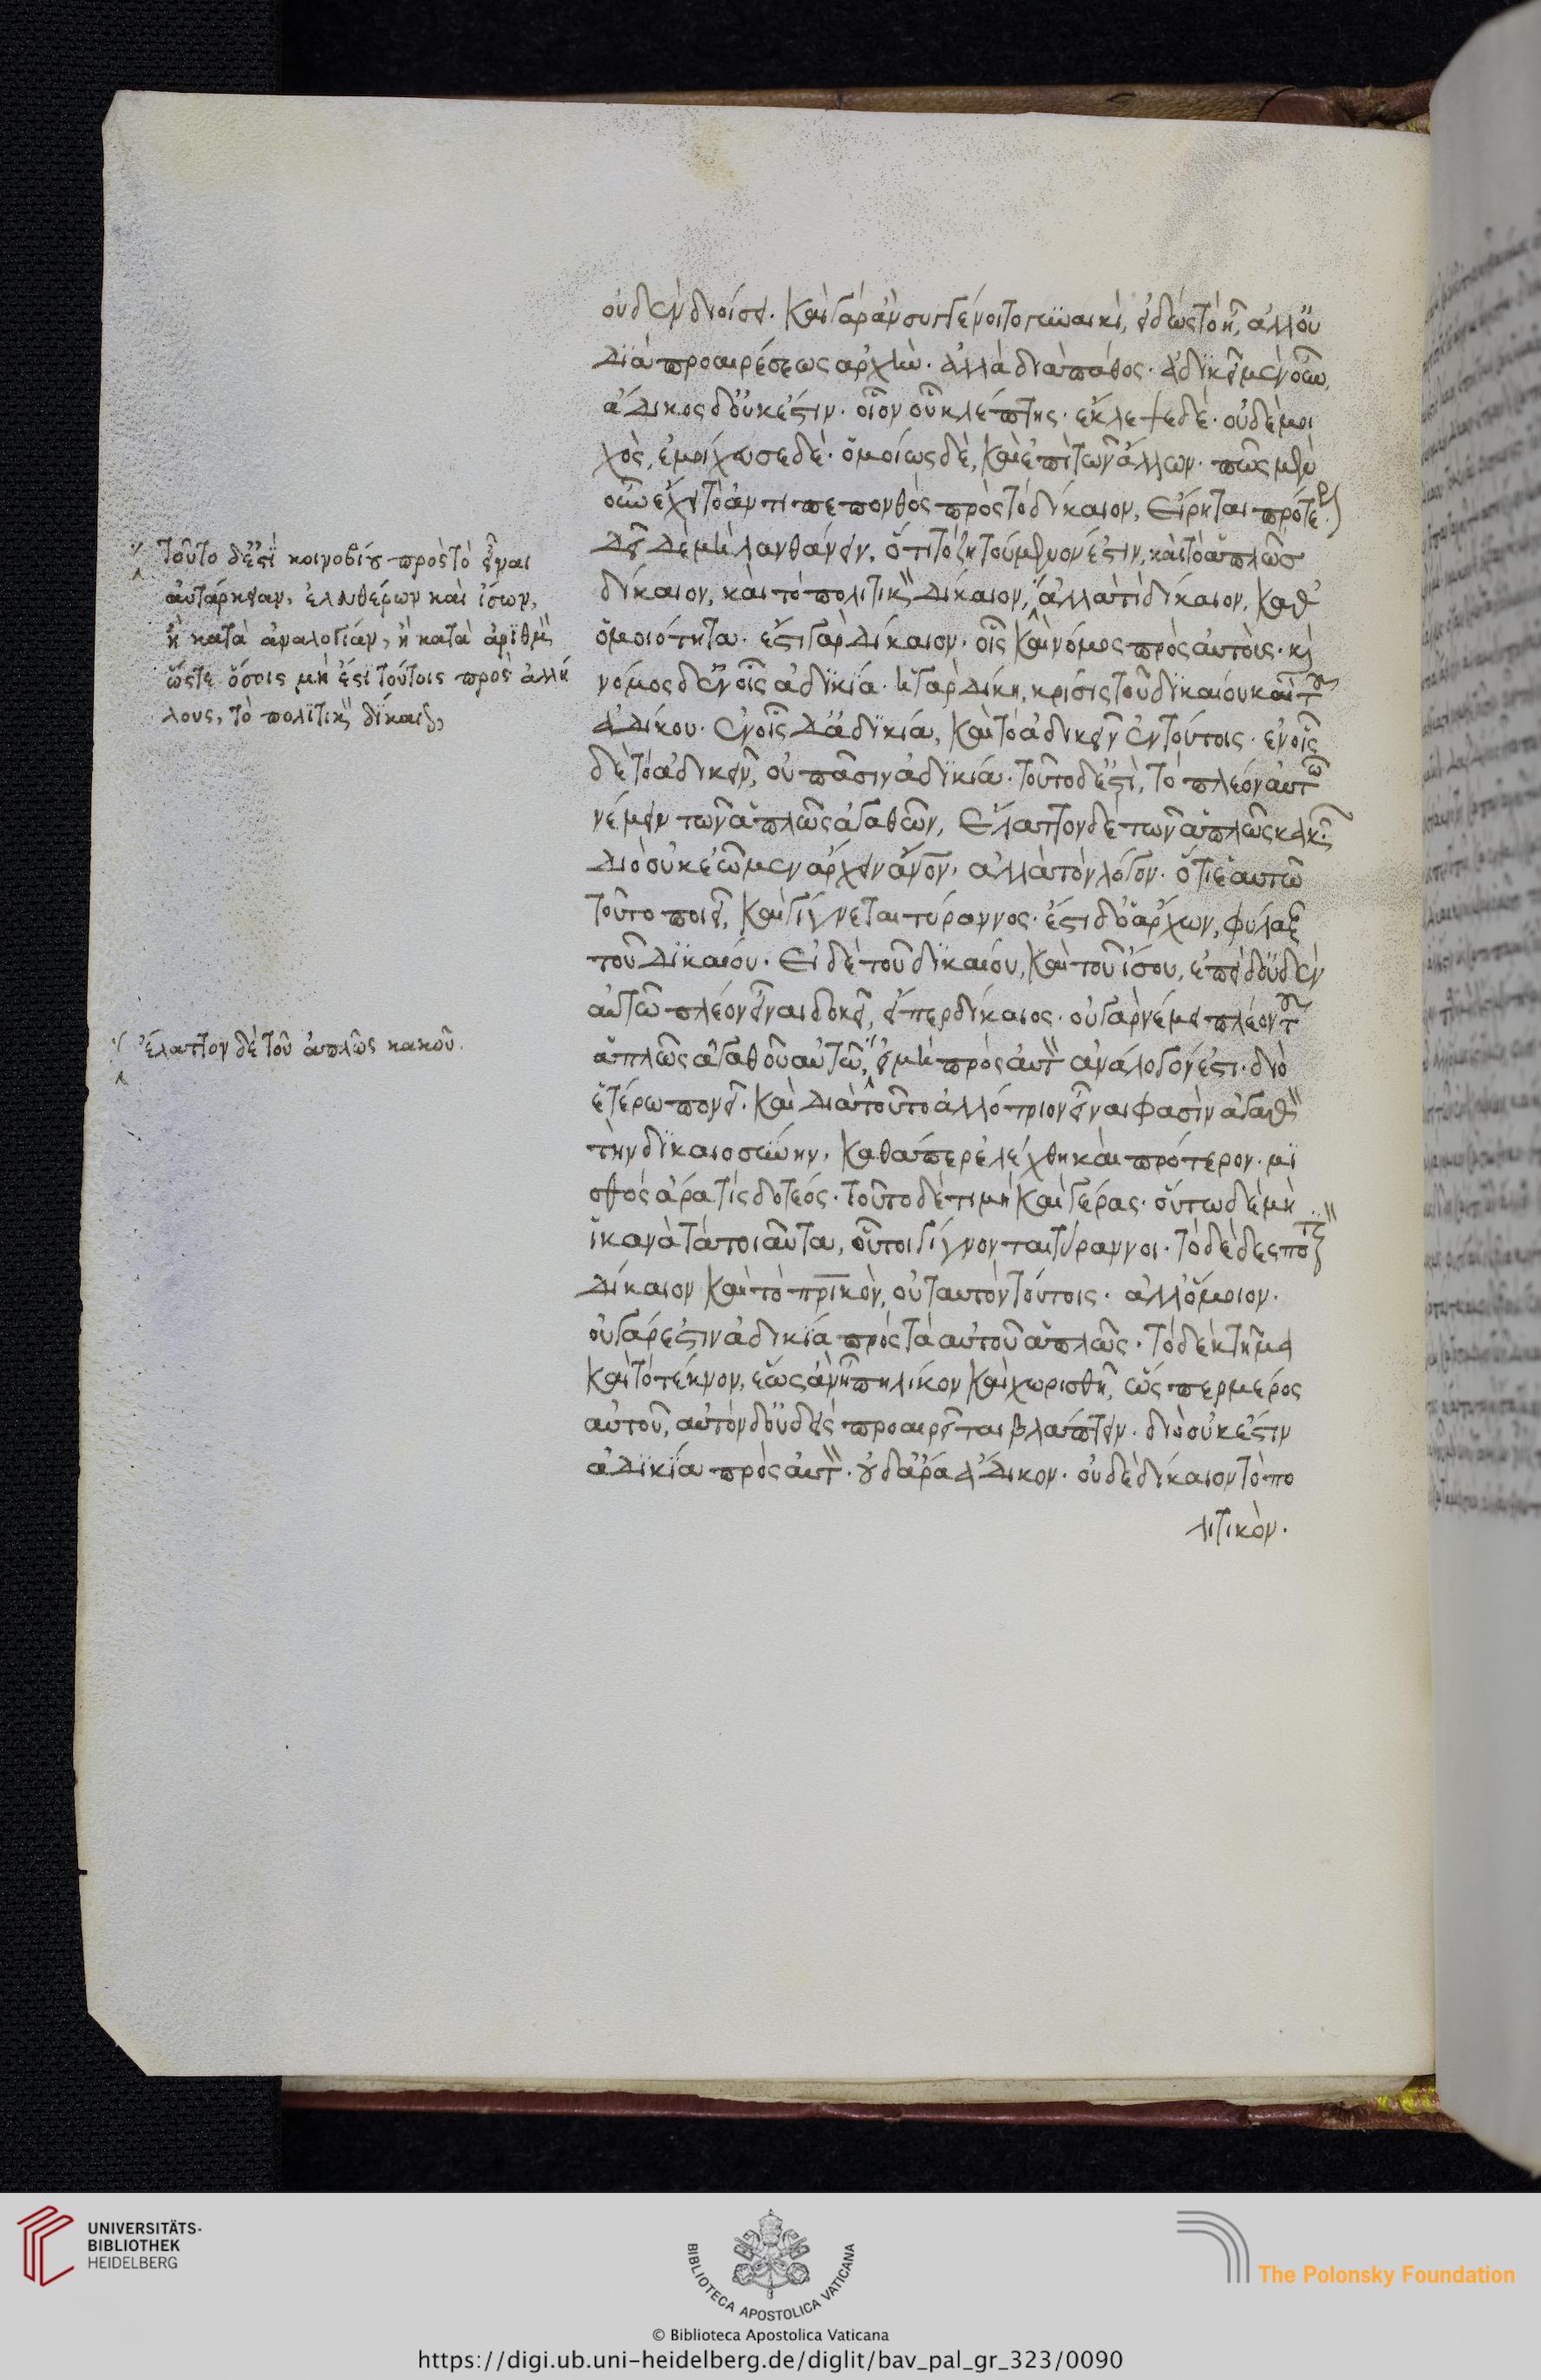 οὐδὲν διοίσει. Καὶ γὰρ ἂν συγγένοιτο γυναικὶ, εἰδὼς τὸ ῆ, ἀλλ' οὐ
διὰ προαιρέσεως ἀρχὴν. ἀλλὰ διὰ πάθος. ἀδικεῖ μὲν οὖν,
ἄδικος δ' οὐκ ἔστιν. οἷον οὐ κλέπτης. ἔκλεψε δέ. οὐδὲ μοι
χὸς, ἐμοίχευσε δέ. ὁμοίως δὲ, καὶ ἐπὶ τῶν ἄλλων. πῶς μὲν
οὖν ἔχει τὸ ἀντιπεπονθὸς πρὸς τὸ δίκαιον, Εἴρηται πρότερ
Δεῖ δὲ μὴ λανθάνειν, ὅτι τὸ ζητούμενόν ἐστιν, καὶ τὸ ἁπλῶς
δίκαιον, καὶ τὸ πολιτικ δίκαιον, ἀλλὰ τὶ δίκαιον, καθ'
ὁμοιότητα. ἔστι γὰρ δίκαιον. οἷς καὶ νόμος πρὸς αὐτοὺς. κὶ
νόμος δ' ἐν οἷς ἀδικία. ἡ γὰρ δίκη, κρίσις τοῦ δικαίου καὶ τοῦ
ἀδίκου. ἐν οἷς δ' ἀδικία, καὶ τὸ ἀδικεῖν ἐν τούτοις. ἐν οἷς
δὲ τὸ ἀδικεῖν, οὐ πᾶσιν ἀδικία. τοῦτο δ' ἐστὶ, τὸ πλέον αὑτῶ
νέμειν τῶν ἁπλῶς ἀγαθῶν, Ἔλαττον δὲ τῶν ἁπλῶς κακῶν
Διὸ οὐκ ἐῶμεν ἄρχειν ἄνον, ἀλλὰ τὸν λόγον. ὅτι ἑαυτῶ
τοῦτο ποιεῖ, καὶ γίγνεται τύραννος. ἔστι δ' ὁ ἄρχων, φύλαξ
τοῦ δικαίου. Εἰ δὲ τοῦ δικαίου, καὶ τοῦ ἴσου, ἐπεὶ δ' οὐδὲν
αὐτῶ πλέον εἶναι δοκεῖ, εἴπερ δίκαιος. οὐ γὰρ νέμει πλέον τοῦ
ἁπλῶς ἀγαθοῦ αὑτῶ, εἰ μὴ πρὸς αὐτ ἀνάλογόν ἐστι. διὸ
ἑτέρω πονεῖ. καὶ διὰ τοῦτο ἀλλότριον εἶναι φασὶν ἀγαθ
τὴν δικαιοσύνην, καθάπερ ἐλέχθη καὶ πρότερον. μι
σθὸς ἄρα τίς δοτέος. τοῦτο δὲ τιμὴ καὶ γέρας. ὅτω δὲ μὴ
ἱκανὰ τὰ τοιαῦτα, οὗτοι γίγνονται τύραννοι. τὸ δὲ δεσποτικ
δίκαιον καὶ τὸ πρικὸν, οὐ ταυτὸν τούτοις. ἀλλ' ὅμοιον.
οὐ γὰρ ἔστιν ἀδικία πρὸς τὰ αὑτοῦ ἁπλῶς. τὸ δὲ κτῆμα
καὶ τὸ τέκνον, ἕως ἂν ῆ πηλίκον καὶ χωρισθῆ, ὥσπερ μέρος
αὑτοῦ, αὑτὸν δ' οὐδεὶς προαιρεῖται βλάπτειν. διὸ οὐκ ἔστιν
ἀδικία πρὸς αὑτ. οὐδ' ἄρα ἄδικον. οὐδὲ δίκαιον τὸ πο
λιτικὸν.
τοῦτο δ' ἐστὶ κοινοῦ βίου πρὸς τὸ εἶναι
αὐτάρκειαν, ἐλευθέρων καὶ ἴσων,
ἢ κατὰ ἀναλογίαν, ἢ κατὰ ἀριθμ
ὥστε ὅσοις μὴ ἐστὶ τούτοις πρὸς ἀλλή
λους, τὸ πολιτικ δίκαιον,
ἔλαττον δὲ τοῦ ἁπλῶς κακοῦ.
UNIVERSITÄTS-
BIBLIOTHEK
HEIDELBERG
BIBLIOTECA APOSTOLICA VATICANA
The Polonsky Foundation
© Biblioteca Apostolica Vaticana
https://digi.ub.uni-heidelberg.de/diglit/bav_pal_gr_323/0090